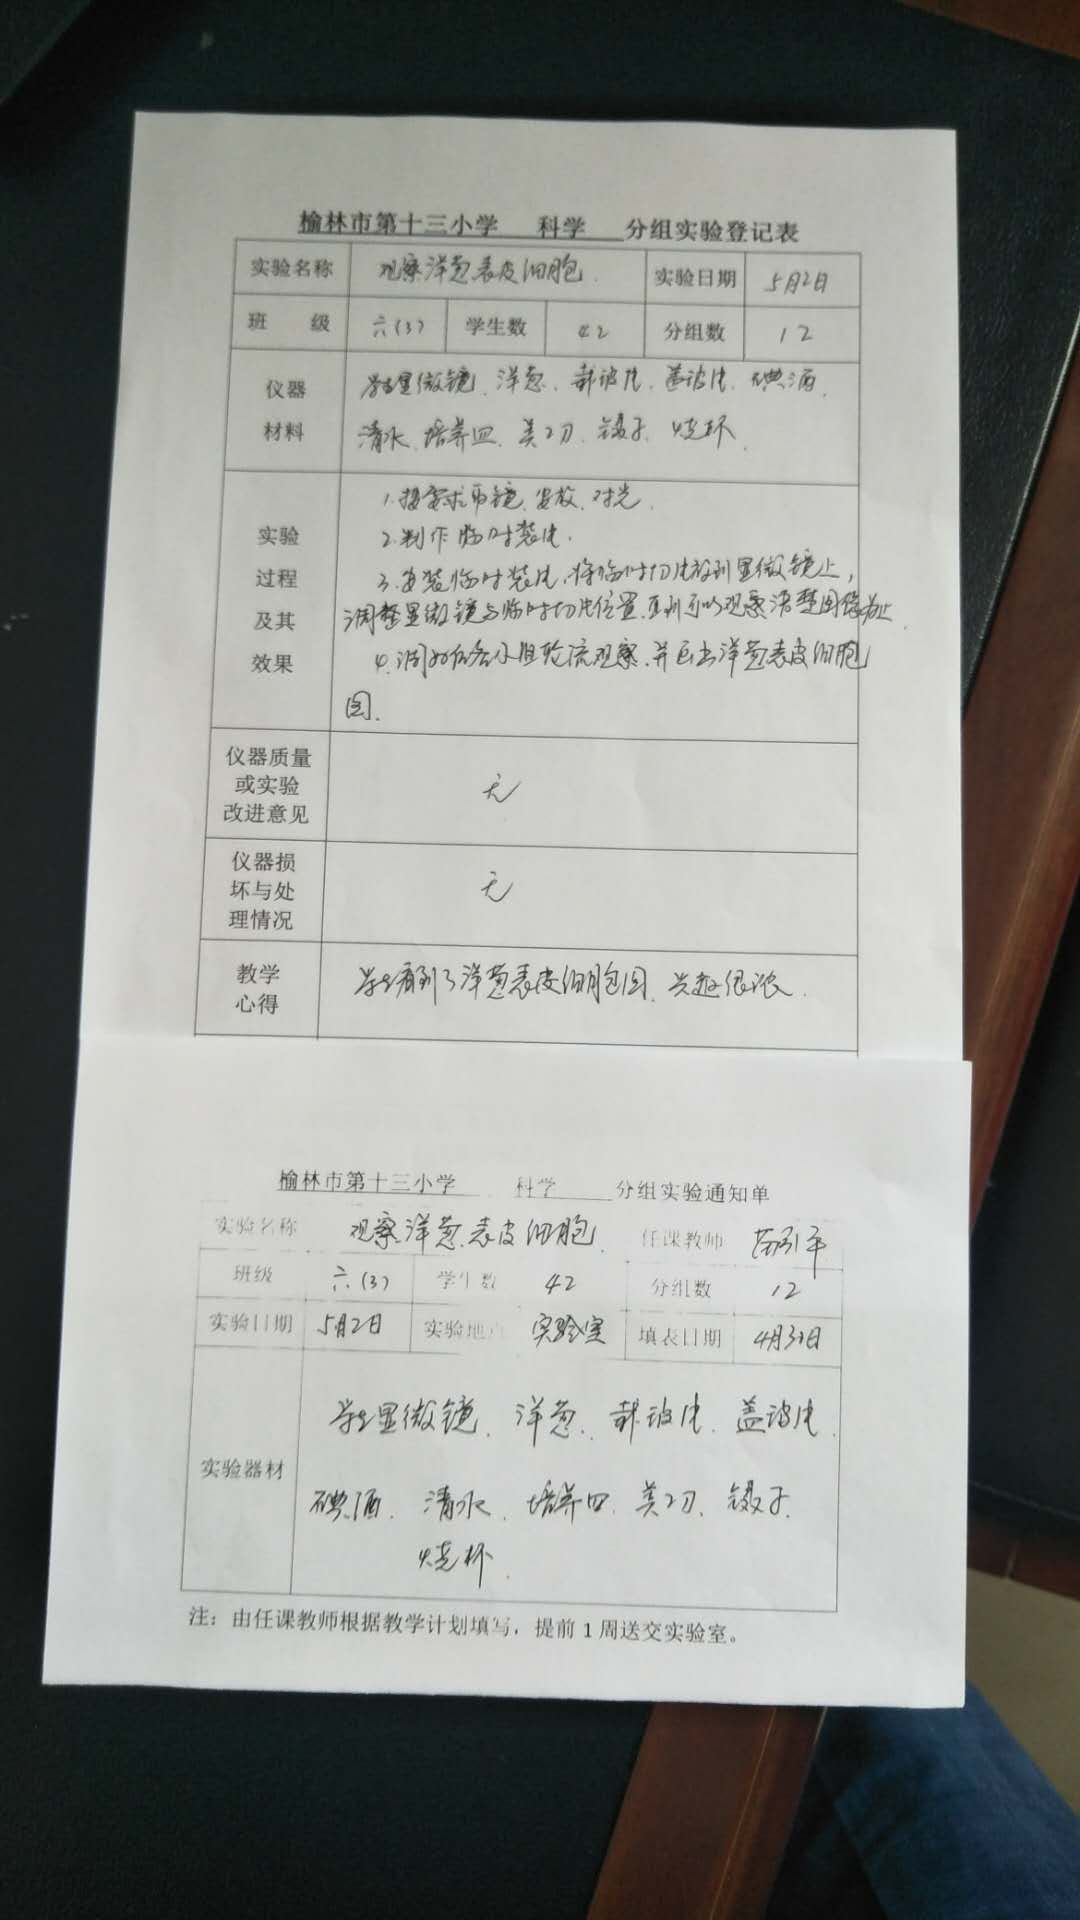 榆林市第十三小学 科学 分组实验登记表
实验名称 观察洋葱表皮细胞. 实验日期 5月2日
班 级 六(3) 学生数 42 分组数 12
仪器 学生显微镜、洋葱、载玻片、盖玻片、碘酒、
材料 清水、培养皿、美工刀、镊子、烧杯.
1.按要求取镜、安放、对光.
实验 2.制作临时装片.
过程 3.安装临时装片.将临时切片放到显微镜上,
及其 调整显微镜与临时切片位置.直到可以观察清楚图像为止.
效果 4.调好后各小组轮流观察.并画出洋葱表皮细胞
图.
仪器质量
或实验 无
改进意见
仪器损
坏与处 无
理情况
教学 学生看到了洋葱表皮细胞图、兴趣很浓.
心得
榆林市第十三小学 科学 分组实验通知单
实验名称 观察洋葱表皮细胞. 任课教师
班级 六(3) 学生数 42 分组数 12
实验日期 5月2日 实验地 实验室 填表日期 4月30日
学生显微镜、洋葱、载玻片、盖玻片、
实验器材
碘酒、清水、培养皿、美工刀、镊子、
烧杯.
注：由任课教师根据教学计划填写，提前1周送交实验室。